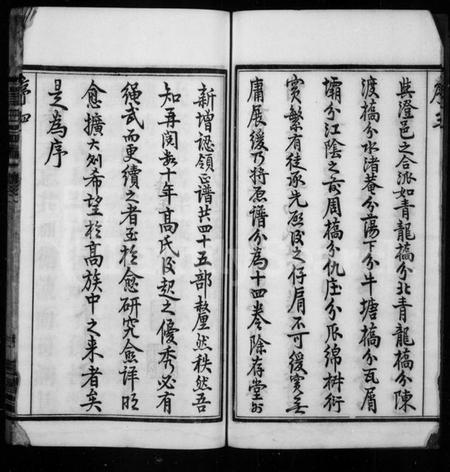 序三
與澄邑之合派如青龍橋分北青龍橋分陳
渡橋分水渚菴分蕩下分牛塘橋分瓦屑
壩分江陰之前周橋分仇庄分瓜綿椒衍
實繁有徒承先啟後之仔肩不可緩實無
庸展緩乃將原譜分為十四卷除存堂外
新增認領正譜共四十五部釐然秩然吾
知再閱數十年高氏後起之優秀必有
繩武而更續之者至於愈研究愈詳旺
愈擴大則希望於高族中之來者矣
是為序
序四